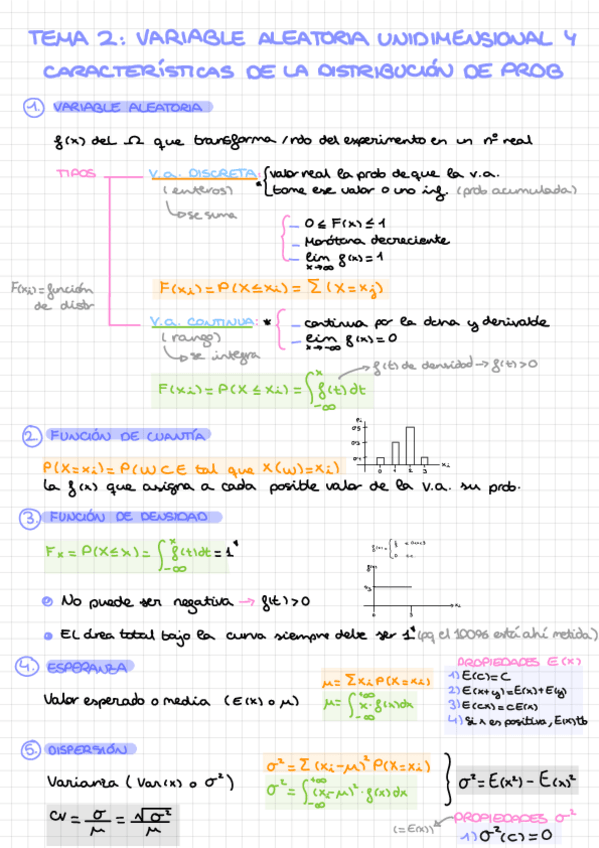 TEMA 2: VARIABLE ALEATORIA UNIDIMENSIONAL Y
CARACTERÍSTICAS DE LA DISTRIBUCIÓN DE PROB
1. VARIABLE ALEATORIA
f(x) del Ω que transforma /ndo del experimento en un nº real
TIPOS
V.a. DISCRETA: valor real la prob de que la v.a.
(enteros) * tome ese valor o uno inf. (prob acumulada)
se suma
- 0 ≤ F(x) ≤ 1
- Monótona decreciente
- lim f(x) = 1
x→∞
F(xi) = función
de distr
F(xi) = P(X ≤ xi) = Σ (X = xj)
V.a. CONTINUA: * - continua por la dcha y derivable
(rango) - lim f(x) = 0
x→-∞
se integra
f(t) de densidad → f(t) > 0
F(xi) = P(X ≤ xi) = ∫_{-∞}^{x} f(t) dt
2. FUNCIÓN DE CUANTÍA
P(X=xi) = P(W C E tal que X(w)=xi)
La f(x) que asigna a cada posible valor de la v.a. su prob.
Pi
0 1 2 3 xi
3. FUNCIÓN DE DENSIDAD
Fx = P(X ≤ x) = ∫_{-∞}^{x} f(t) dt = 1*
No puede ser negativa → f(t) > 0
El área total bajo la curva siempre debe ser 1* (pq el 100% está ahí metida)
4. ESPERANZA
Valor esperado o media (E(x) o μ)
μ = Σ xi P(X = xi)
μ = ∫_{-∞}^{+∞} x · f(x) dx
PROPIEDADES E(X)
1) E(C) = C
2) E(x+y) = E(x) + E(y)
3) E(cx) = c E(x)
4) Si x es positiva, E(x) tb
5. DISPERSIÓN
Varianza (Var(x) o σ²)
σ² = Σ (xi-μ)² P(X = xi)
σ² = ∫_{-∞}^{+∞} (xi-μ)² · f(x) dx
σ² = E(x²) - E(x)²
CV = σ/μ = √σ²/μ
(= E(x))
PROPIEDADES σ²
1) σ²(C) = 0